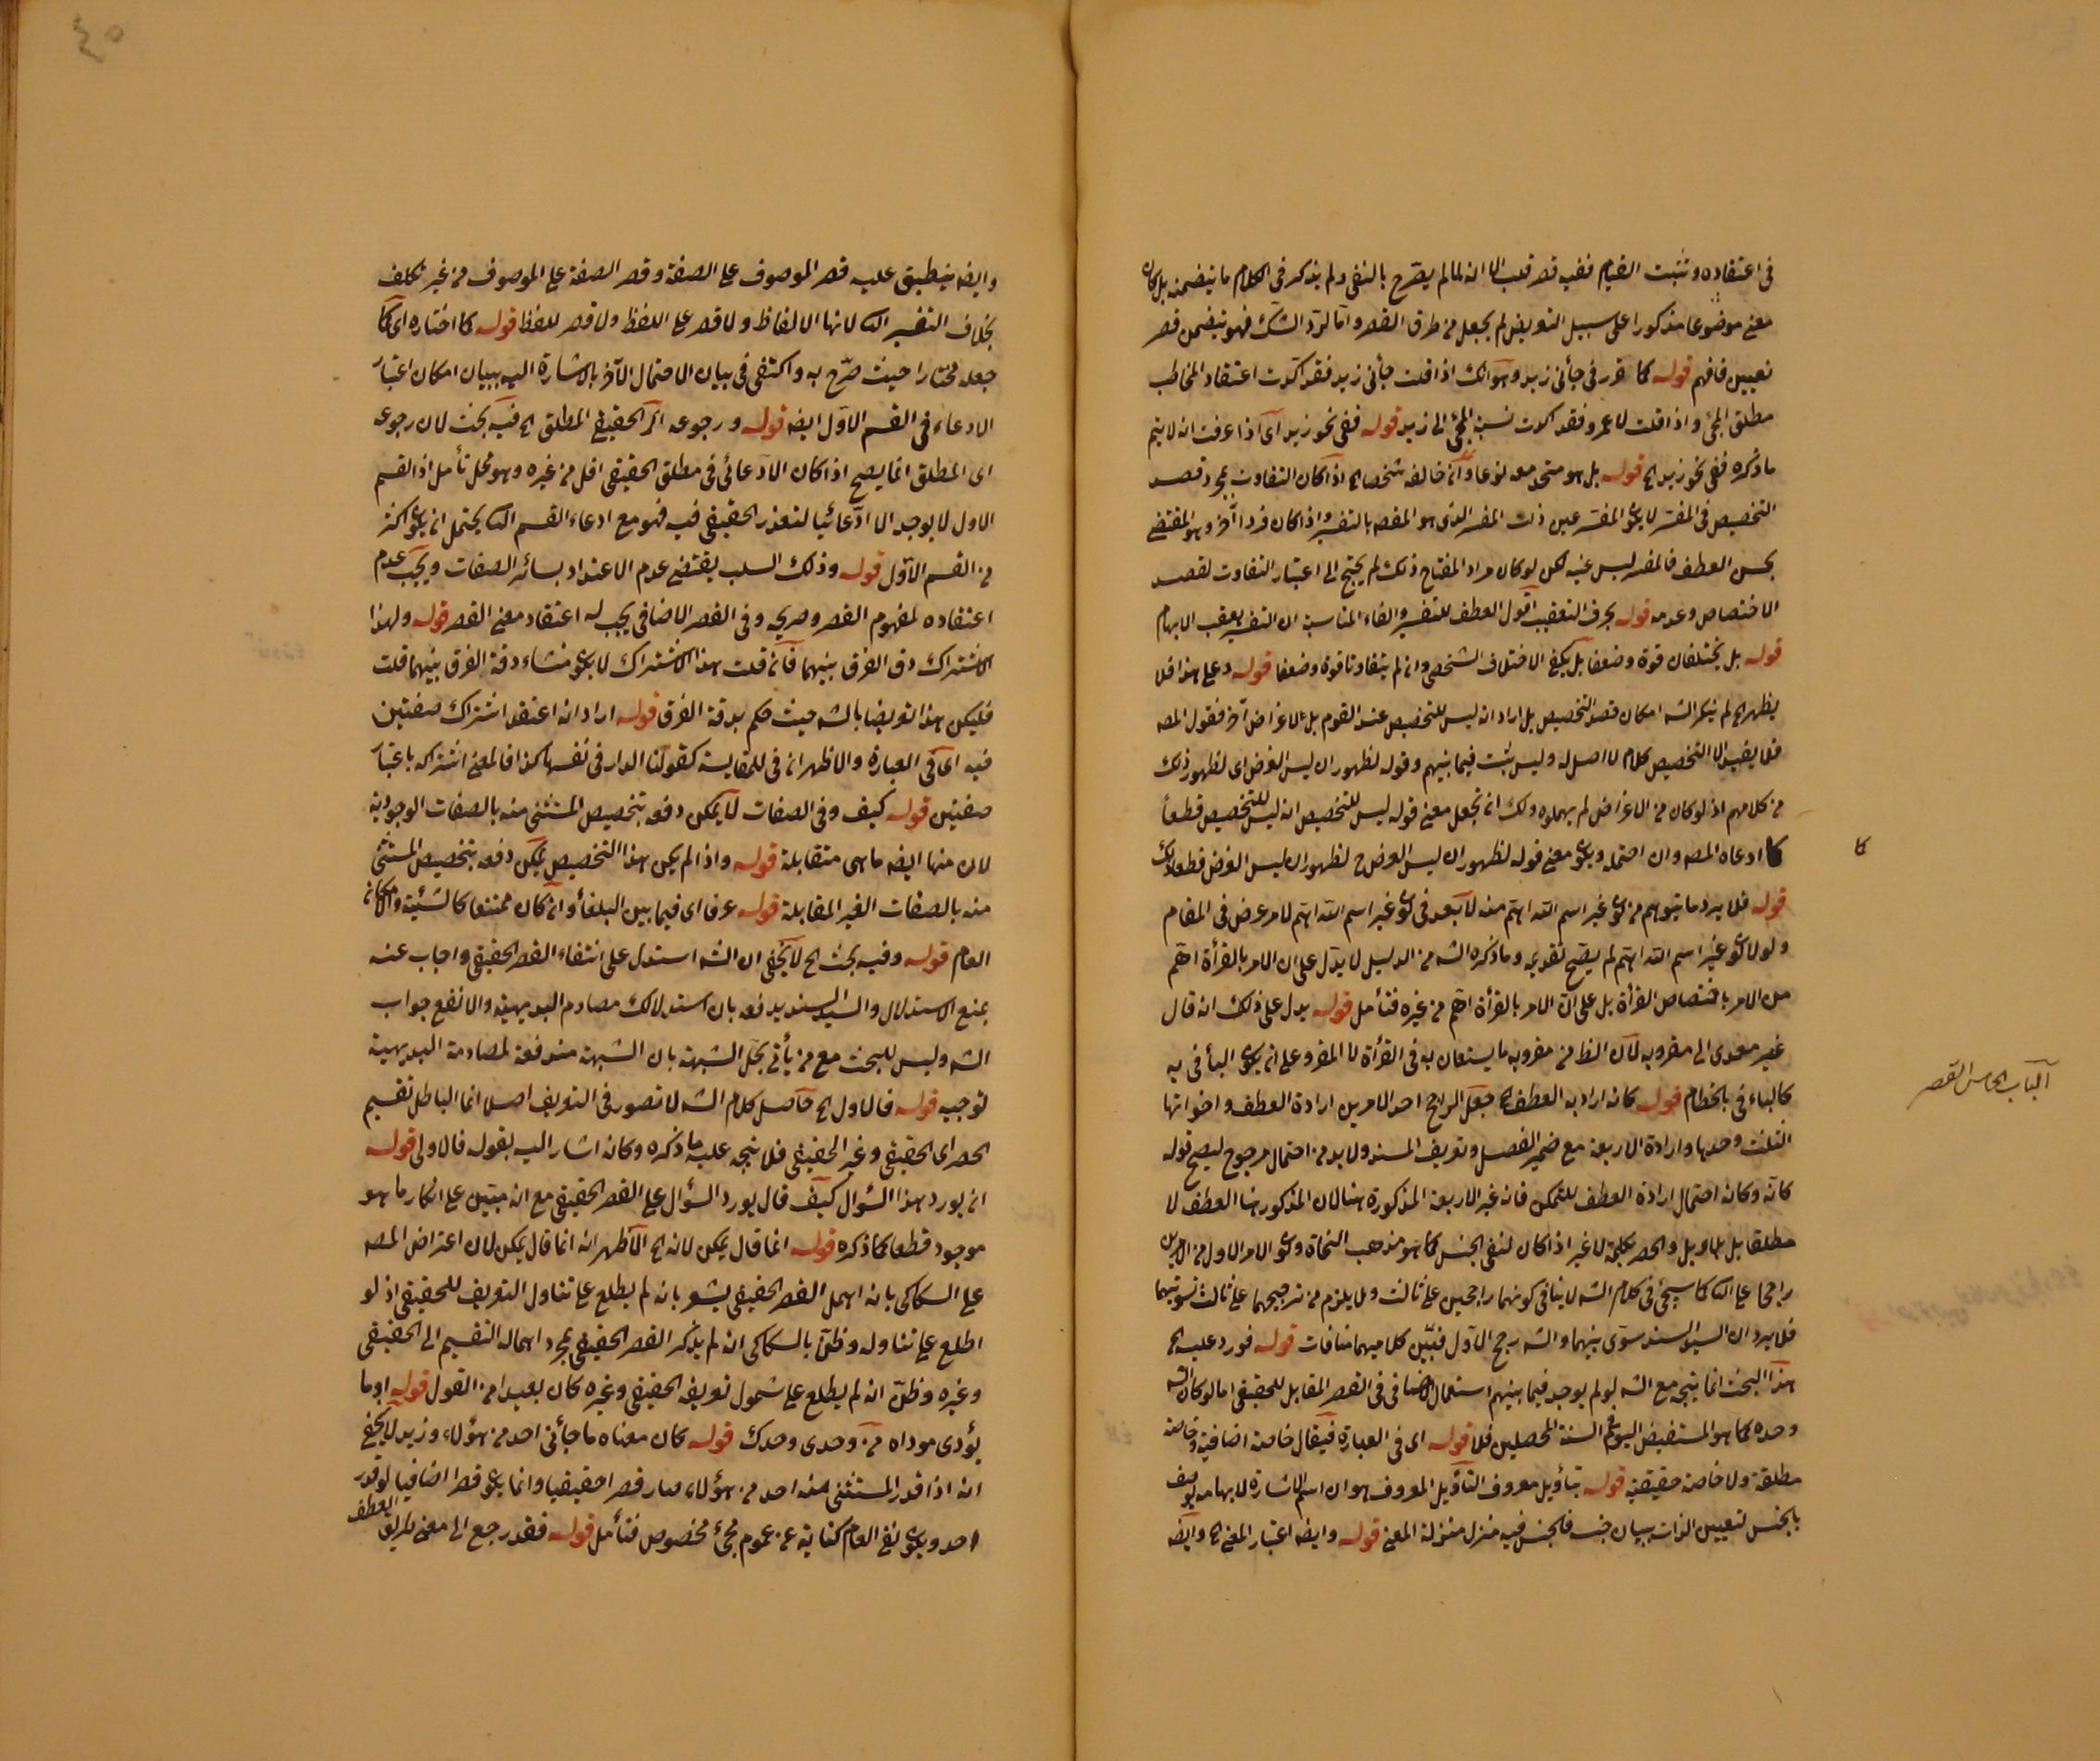 فى اعتقاده ويثبت القيام ففيه قصر قلب الا انه لما لم يصرح بالنفى ولم يذكر فى الكلام ما يتضمنه بل كان
معنى موضوعا مذكورا على سبيل التعريض لم يجعل من طرق القصر واما لرد الشك فهو يتضمن قصر
تعيين فافهم قوله كما قرر فى جأنى زيد وهو انك اذا قلت جأنى زيد فقد اكدت اعتقاد المخاطب
مطلق المجئ واذا قلت لا عمرو فقد اكدت نسبة المجئ الى زيد قوله ففى نحو زيد اى اذا عرفت انه لا يتم
ما ذكره ففى نحو زيد الخ قوله بل هو متحد معه نوعا وان خالفه شخصا الخ اذا كان التفاوت بمجرد قصد
التخصيص فى المفسر لا يكون المفسر عين ذلك المفسر الذى هو المقصد بالتفسير واذا كان فردا آخر وهو المقتضى
بحسن العطف فالمفسر ليس عينه لكن لو كان مراد المفتاح ذلك لم يحتج الى اعتبار التفاوت لقصد
الاختصاص وعدمه قوله بحرف التعقيب اقول العطف للتفسير والفاء المناسبة ان التفسير يعقب الابهام
قوله بل يختلفان قوة وضعفا بل يكفى الاختلاف الشخصى وان لم يتفاوتا قوة وضعفا قوله وعلى هذا فلا
يظهر الخ لم ينكر الشه امكان قصد التخصيص بل اراد انه ليس للتخصيص عند القوم بل لاغراض آخر فقول المصه
فلا يفيد الا التخصيص كلام لا اصل له وليس يثبت فيما بينهم وقوله لظهور ان ليس الغرض اى لظهور ذلك
من كلامهم اذ لو كان من الاغراض لم يهملوه ولك ان تجعل معنى قوله ليس للتخصيص انه ليس للتخصيص قطعا
كما ادعاه المصه وان احتمله ويكون معنى قوله لظهور ان ليس الغرض ح لظهور ان ليس الغرض قطعا ذلك
قوله فلا يرد ما يتوهم من كون غير اسم الله اهتم منه لا بعد فى كون غير اسم الله اهتم لامر عرض فى المقام
ولولا كون غير اسم الله اهتم لم يصح تقديمه وما ذكره الشه من الدليل لا يدل على ان الامر بالقرأة اهم
من الامر باختصاص القرأة بل على ان الامر بالقرأة اهم من غيره فتأمل قوله يدل على ذلك انه قال
غير معدى الى مقروبه لان الظ من مقروبه ما يستعان به فى القرأة لا المقروء على ان يكون البأ فى به
كالباء فى بالخطام قوله كانه اراد به العطف الخ جعل الراجح احد الامرين ارادة العطف واخواتها
الثلث وحدها وارادة الاربعة مع ضمير الفصل وتعريف المسند ولا بد من احتمال مرجوح ليصح قوله
كانه وكانه احتمال ارادة العطف للتمكن فانه غير الاربعة المذكورة هنا لان المذكور هنا العطف لا
مطلقا بل بلا وبل والحصر بكلمة لا غير اذا كان لنفى الجنس كما هو مذهب النحاة وكون الامر الاول من الامرين
راجحا على الثا كما سيجئ فى كلام الشه لا ينافى كونهما راجحين على ثالث ولا يلزم من ترجيحهما على ثالث تسويتهما
فلا يرد ان السيد السند سوى بينهما والشه رجح الاول فبين كلاميهما منافات قوله فورد عليه الخ
هذا البحث انما يتجه مع الشه لو لم يوجد فيما بينهم استعمال الاضافى فى القصر المقابل للحقيقى اما لو كان الشه
وحده كما هو المستفيض اليوم فى السنة المحصلين فلا قوله اى فى العبارة فيقال خاصة اضافية وخاصة
مطلقة ولا خاصة حقيقية قوله بتأويل معروف التأويل المعروف هو ان اسم الاشارة لابهامه يوصف
بالجنس لتعيين الذات ببيان جنسه فالجنس فيه منزل منزلة المعنى قوله وايضا اعتبار المعنى الخ وايضا
كا
الباب الخامس القصر
٤٥
وايضا ينطبق عليه قصر الموصوف على الصفة وقصر الصفة على الموصوف من غير تكلف
بخلاف التفسير الثا لانها الالفاظ ولا قصر على اللفظ ولا قصر للفظ قوله كما اختاره اى كما
جعله مختارا حيث صرح به واكتفى فى بيان الاحتمال الآخر بالاشارة اليه ببيان امكان اعتبار
الادعاء فى القسم الاول ايضا قوله ورجوعه الى الحقيقى المطلق الخ فيه بحث لان رجوعه
اى المطلق انما يصح اذا كان الادعائى فى مطلق الحقيقى اقل من غيره وهو محل تأمل اذ القسم
الاول لا يوجد الا ادعائيا لتعذر الحقيقى فيه فهو مع ادعاء القسم الثا يحتمل ان يكون اكثر
من القسم الاول قوله وذلك السلب يقتضى عدم الاعتداد بسائر الصفات ويجب عدم
اعتقاده لمفهوم القصر وصريحه وفى القصر الاضافى يجب له اعتقاد معنى القصر قوله ولهذا
الاشتراك دق الفرق بينهما فان قلت هذا الاشتراك لا يكون منشاء دقة الفرق بينهما قلت
فليكن هذا تعريضا بالشه حيث حكم بدقة الفرق قوله اراد انه اعتقد اشتراك صفتين
فيه اى فى العبارة والاظهر انه فى للمقايسة كقولنا الدار فى نفسها كذا فالمعنى اشتراكه باعتبار
صفتين قوله كيف وفى الصفات لا يمكن دفعه بتخصيص المستثنى منه بالصفات الوجودية
لان منها ايضا ما هى متقابلة قوله واذا لم يكن هذا التخصيص يمكن دفعه بتخصيص المستثنى
منه بالصفات الغير المقابلة قوله عرفا اى فيما بين البلغأ وان كان ممتنعا كالشيئية والامكان
العام قوله وفيه بحث الخ لا يخفى ان الشه استدل على انتفاء القصر الحقيقى واجاب عنه
بمنع الاستدلال والسيد السند يدفعه بان استدلالك مصادم البديهية والانفع جواب
الشه وليس للبحث مع من يأتى بحل الشبهة بان الشبهة مندفعة لمصادمة البديهية
توجيه قوله فالاول الخ حاصل كلام الشه لا تصور فى التعريف اصلا انما الباطل تقسيم
الحصر اى الحقيقى وغير الحقيقى فلا يتجه عليه ما ذكره وكانه اشار اليه بقوله فالاولى قوله
ان يورد هذا السؤال كيف قال يورد السؤال على القصر الحقيقى مع انه مبتين على انكار ما هو
موجود قطعا كما ذكره قوله انما قال يمكن لانه الخ الاظهر انه انما قال يمكن لان اعتراض المصه
على السكاكى بانه اهمل القصر الحقيقى يشعر بانه لم يطلع على تناول التعريف للحقيقى اذ لو
اطلع على تناوله وظن بالسكاكى انه لم يذكر القصر الحقيقى بمجرد اهماله التقسيم الى الحقيقى
وغيره وظن انه لم يطلع على شمول تعريفه الحقيقى وغيره كان بعيدا من القول قوله او ما
يؤدى موداه من وحدى وحدك قوله كان معناه ما جأنى احد من هؤلاء وزيد لا يخفى
انه اذا قدر المستثنى منه احد من هؤلاء صار قصرا حقيقيا وانما يكون قصرا اضافيا لو قدر
احد ويكون نفى العام كناية عن عموم مجئ مخصوص فتأمل قوله فقد رجع الى معنى طريق العطف